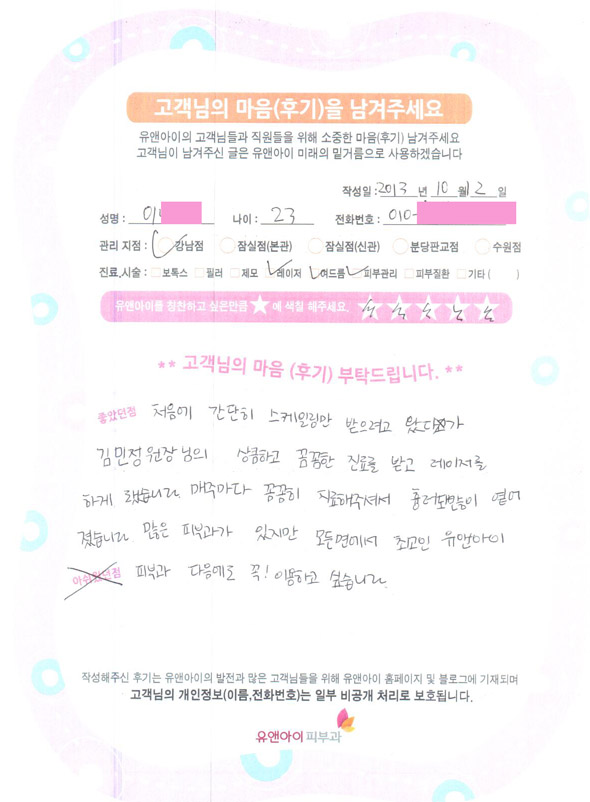 고객님의 마음(후기)을 남겨주세요
유앤아이의 고객님들과 직원들을 위해 소중한 마음(후기) 남겨주세요
고객님이 남겨주신 글은 유앤아이 미래의 밑거름으로 사용하겠습니다
작성일 : 2013 년 10 월 12 일
성명 : 이 나이 : 23 전화번호 : 010-
관리 지점 : 강남점 잠실점(본관) 잠실점(신관) 분당판교점 수원점
진료,시술 : 보톡스 필러 제모 레이저 여드름 피부관리 피부질환 기타 ( )
유앤아이를 칭찬하고 싶은만큼 ★ 에 색칠 해주세요.
** 고객님의 마음 (후기) 부탁드립니다. **
좋았던점 처음에 간단히 스케일링만 받으려고 왔다가
김민정원장님의 상큼하고 꼼꼼한 진료를 받고 레이저를
하게 됐습니다. 매주마다 꼼꼼히 치료해주셔서 흉터와 많이 옅어
졌습니다. 많은 피부과가 있지만 모든면에서 최고인 유앤아이
아쉬웠던점 피부과 다음에도 꼭! 이용하고 싶습니다.
작성해주신 후기는 유앤아이의 발전과 많은 고객님들을 위해 유앤아이 홈페이지 및 블로그에 기재되며
고객님의 개인정보(이름,전화번호)는 일부 비공개 처리로 보호됩니다.
유앤아이 피부과